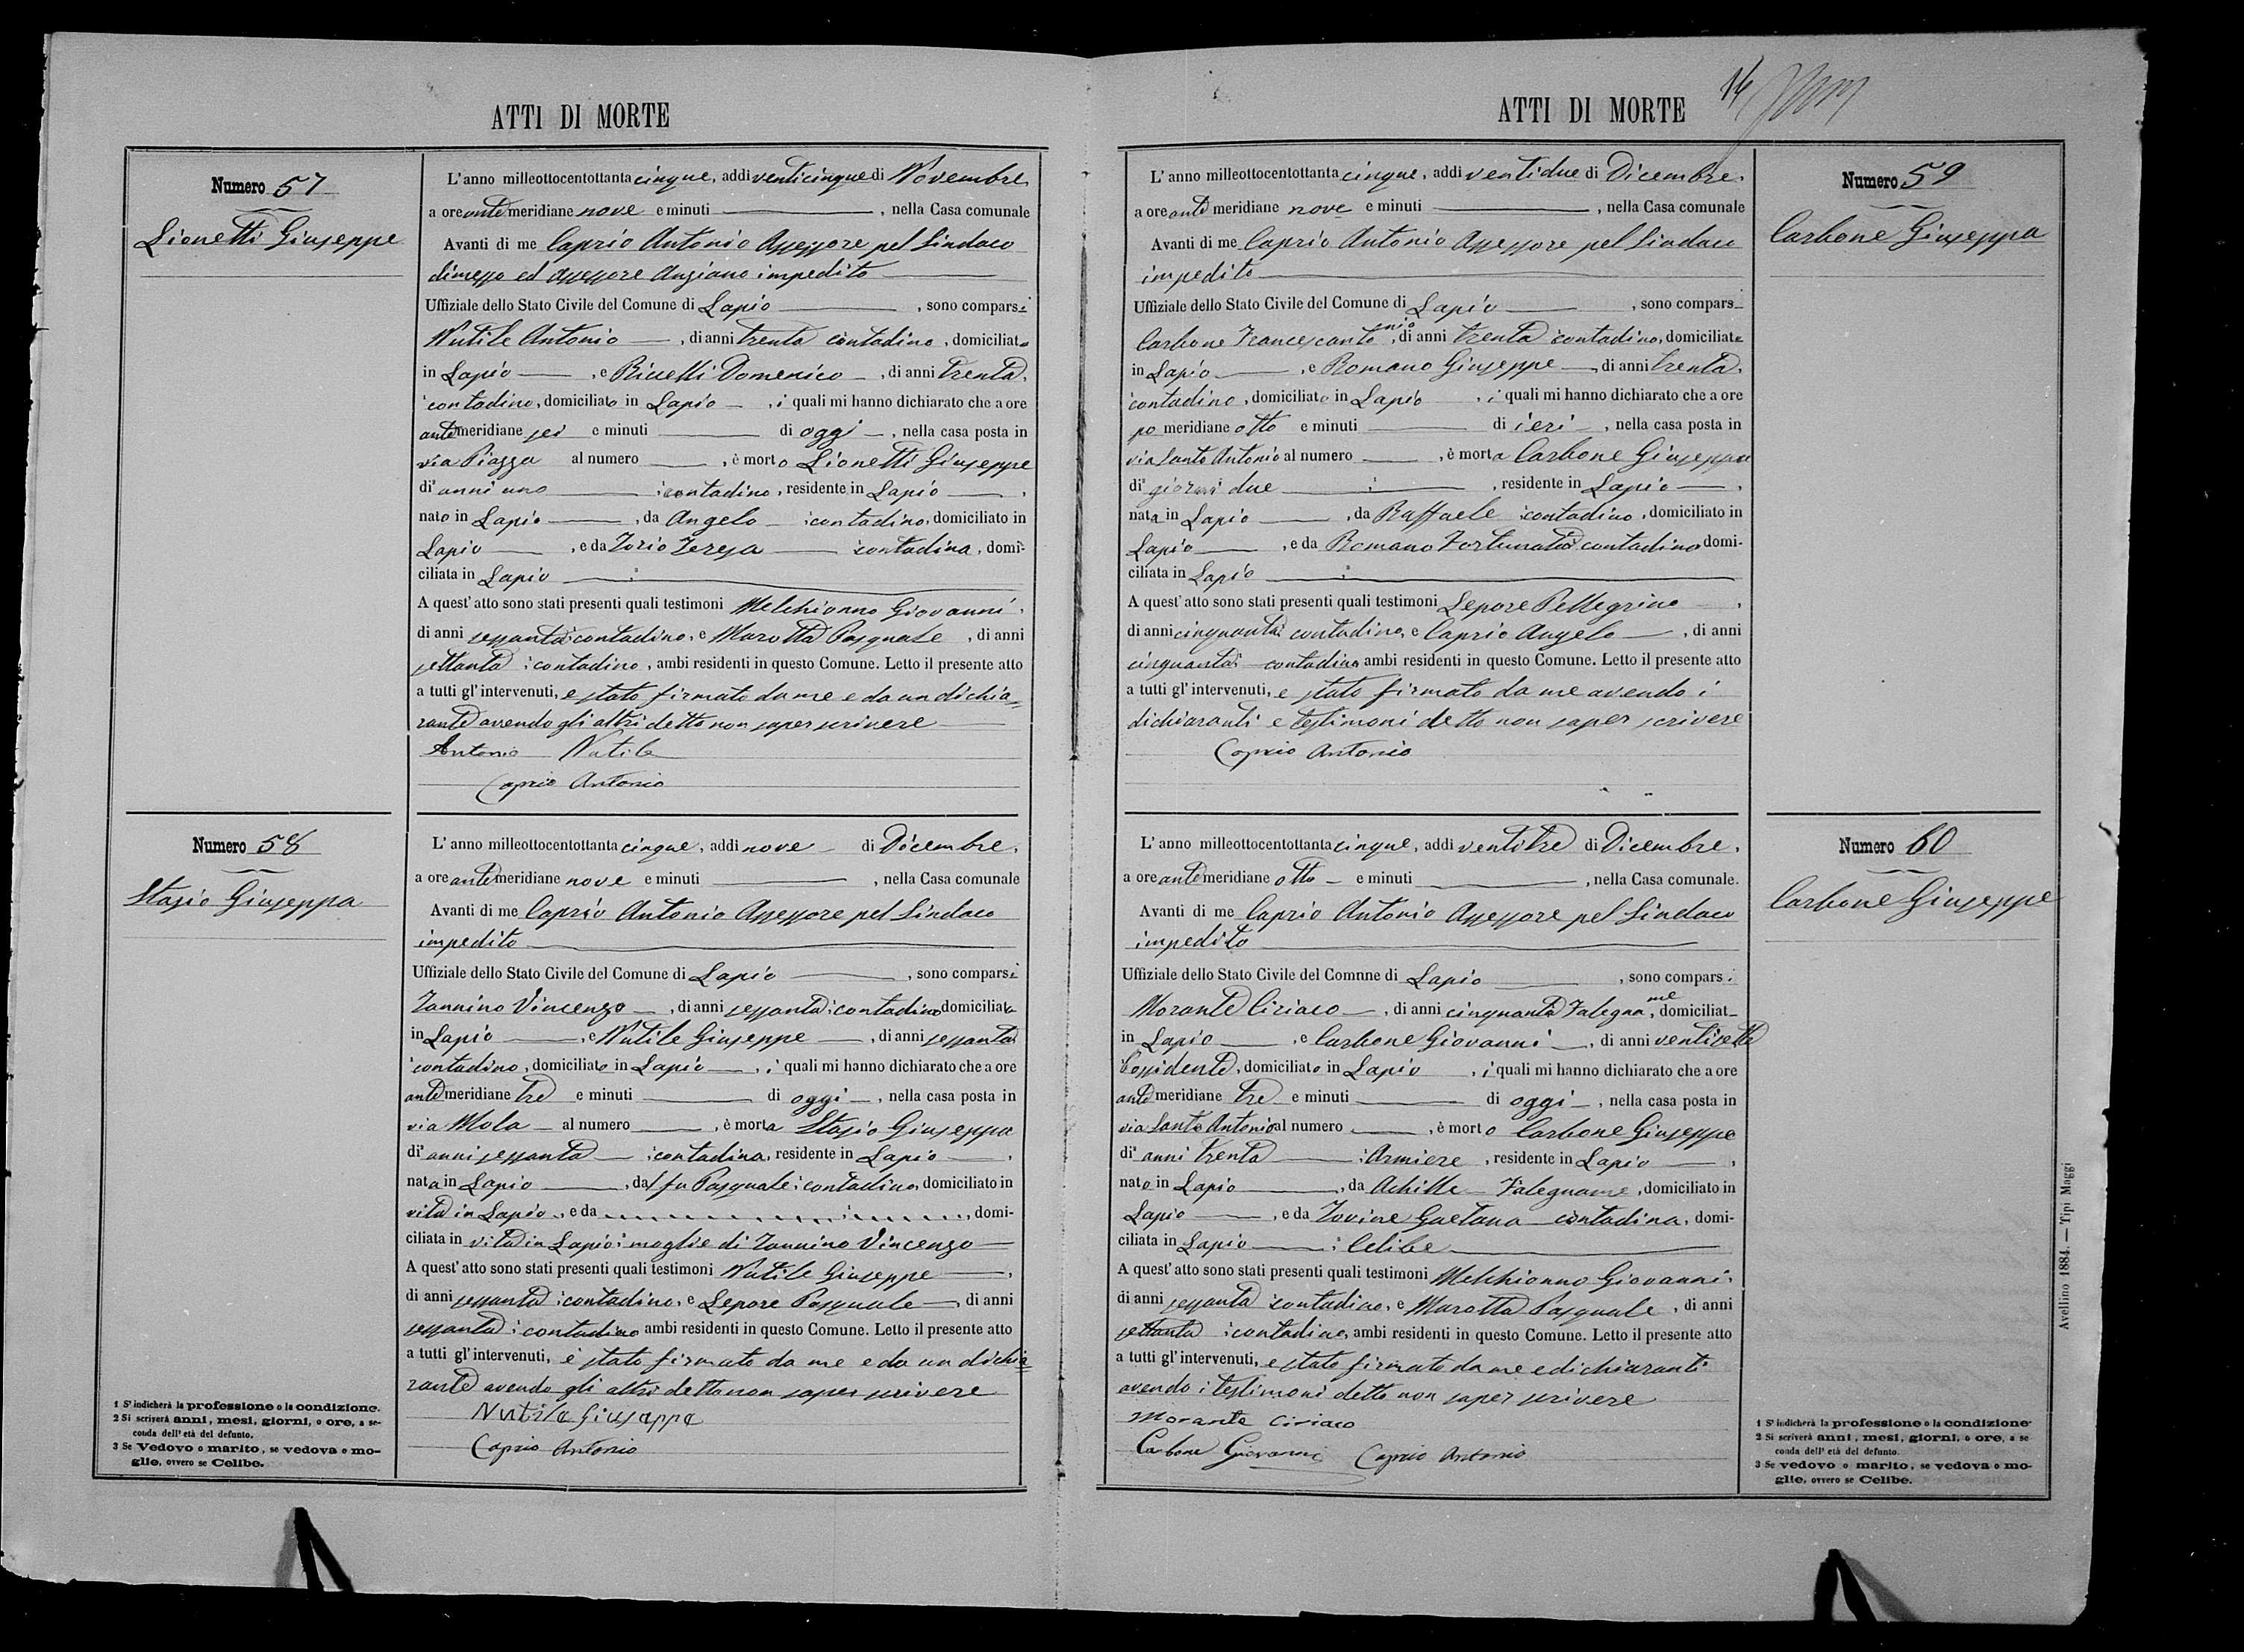 ATTI DI MORTE
Numero 57
Lionetti Giuseppe
L'anno milleottocentottantacinque, addì venticinque di Novembre,
a ore antimeridiane nove e minuti , nella Casa comunale
Avanti di me Caprio Antonio Assessore pel Sindaco
dimesso ed assessore Anziano impedito
Uffiziale dello Stato Civile del Comune di Lapio , sono comparsi
Nutile Antonio , di anni trenta contadino, domiciliato
in Lapio , e Riccelli Domenico , di anni trenta,
contadino, domiciliato in Lapio , i quali mi hanno dichiarato che a ore
antimeridiane sei e minuti di oggi , nella casa posta in
via Piazza al numero , è morto Lionetti Giuseppe
di anni uno contadino, residente in Lapio ,
nato in Lapio , da Angelo contadino, domiciliato in
Lapio , e da Iorio Teresa contadina, domi-
ciliata in Lapio
A quest'atto sono stati presenti quali testimoni Melchionno Giovanni,
di anni sessanta contadino, e Marotta Pasquale , di anni
settanta contadino, ambi residenti in questo Comune. Letto il presente atto
a tutti gl'intervenuti, e stato firmato da me e da un dichia=
rante avendo gli altri detto non saper scrivere
Antonio Nutile
Caprio Antonio
Numero 58
Stasio Giuseppa
L'anno milleottocentottantacinque, addì nove di Dicembre,
a ore antimeridiane nove e minuti , nella Casa comunale
Avanti di me Caprio Antonio Assessore pel Sindaco
impedito
Uffiziale dello Stato Civile del Comune di Lapio , sono comparsi
Iannino Vincenzo , di anni sessanta contadino domiciliato
in Lapio , e Nutile Giuseppe , di anni sessanta
contadino, domiciliato in Lapio , i quali mi hanno dichiarato che a ore
antimeridiane tre e minuti di oggi , nella casa posta in
via Mola al numero , è morta Stasio Giuseppa
di anni sessanta contadina, residente in Lapio ,
nata in Lapio , dal fu Pasquale contadino, domiciliato in
vita in Lapio, e da , domi-
ciliata in vita in Lapio moglie di Iannino Vincenzo
A quest'atto sono stati presenti quali testimoni Nutile Giuseppe ,
di anni sessanta contadino, e Lepore Pasquale , di anni
sessanta contadino ambi residenti in questo Comune. Letto il presente atto
a tutti gl'intervenuti, è stato firmato da me e da un dichia
rante avendo gli altri detto non saper scrivere
Nutile Giuseppe
Caprio Antonio
1 S'indicherà la professione o la condizione.
2 Si scriverà anni, mesi, giorni, o ore, a se-
conda dell'età del defunto.
3 Se Vedovo o marito, se vedova o mo-
glie, ovvero se Celibe.
ATTI DI MORTE
14
Numero 59
Carbone Giuseppa
L'anno milleottocentottantacinque, addì ventidue di Dicembre,
a ore antimeridiane nove e minuti , nella Casa comunale
Avanti di me Caprio Antonio Assessore pel Sindaco
impedito
Uffiziale dello Stato Civile del Comune di Lapio , sono compars
Carbone Francescantonio, di anni trenta contadino, domiciliato
in Lapio , e Romano Giuseppe , di anni trenta,
contadino, domiciliato in Lapio , i quali mi hanno dichiarato che a ore
pomeridiane otto e minuti di ieri , nella casa posta in
via Santo Antonio al numero , è morta Carbone Giuseppa
di giorni due , residente in Lapio ,
nata in Lapio , da Raffaele contadino, domiciliato in
Lapio , e da Romano Fortunata contadina domi-
ciliata in Lapio
A quest'atto sono stati presenti quali testimoni Lepore Pellegrino ,
di anni cinquanta contadino, e Caprio Angelo , di anni
cinquanta contadino ambi residenti in questo Comune. Letto il presente atto
a tutti gl'intervenuti, e stato firmato da me avendo i
dichiaranti e testimoni detto non saper scrivere
Caprio Antonio
Numero 60
Carbone Giuseppe
L'anno milleottocentottantacinque, addì ventitre di Dicembre,
a ore antimeridiane otto e minuti , nella Casa comunale.
Avanti di me Caprio Antonio Assessore pel Sindaco
impedito
Uffiziale dello Stato Civile del Comnne di Lapio , sono comparsi
Morante Ciriaco , di anni cinquanta Falegname, domiciliat
in Lapio , e Carbone Giovanni , di anni ventisette
Possidente, domiciliato in Lapio , i quali mi hanno dichiarato che a ore
antimeridiane tre e minuti di oggi , nella casa posta in
via Santo Antonio al numero , è morto Carbone Giuseppe
di anni trenta Armiere , residente in Lapio ,
nato in Lapio , da Achille Falegname, domiciliato in
Lapio , e da Iovine Gaetana contadina, domi-
ciliata in Lapio Celibe
A quest'atto sono stati presenti quali testimoni Melchionno Giovanni,
di anni sessanta contadino, e Marotta Pasquale , di anni
settanta contadino, ambi residenti in questo Comune. Letto il presente atto
a tutti gl'intervenuti, e stato firmato da me e dichiaranti
avendo i testimoni detto non saper scrivere
Morante Ciriaco
Carbone Giovanni Caprio Antonio
1 S'indicherà la professione o la condizione
2 Si scriverà anni, mesi, giorni, o ore, a se
conda dell'età del defunto.
3 Se vedovo o marito, se vedova o mo-
glie, ovvero se Celibe.
Avellino 1884. — Tipi Maggi